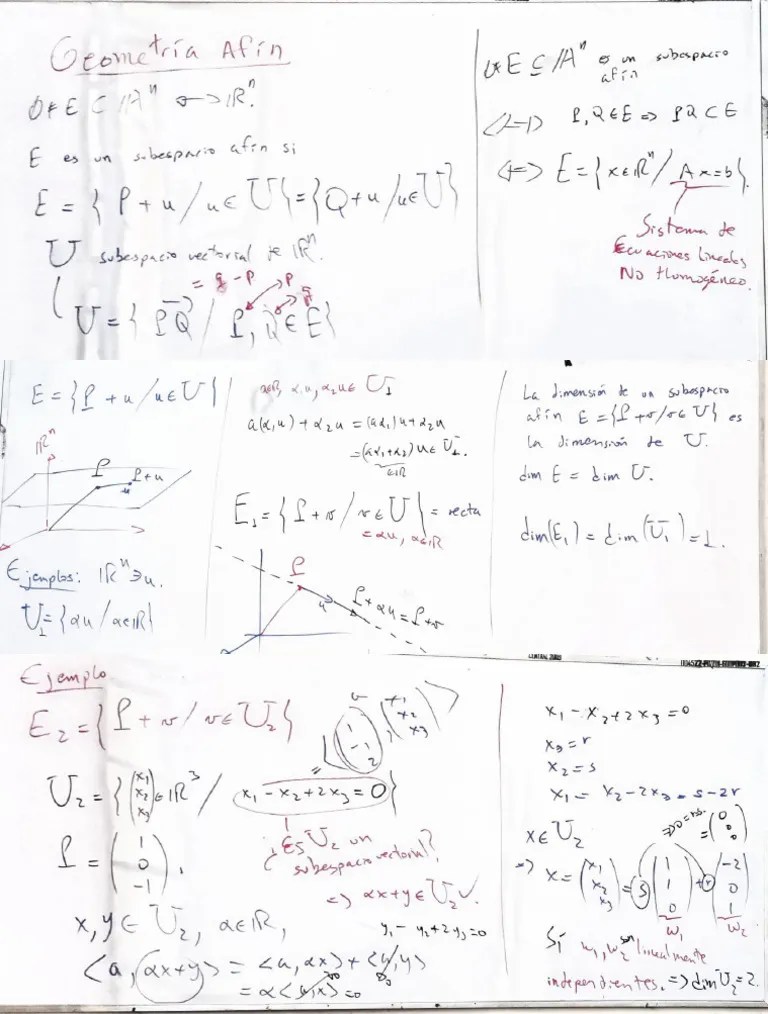 Geometría Afín
∅ ≠ E ⊆ 𝔸ⁿ ↔ ℝⁿ.
E es un subespacio afín si
E = { P + u / u ∈ U } = { Q + u / u ∈ U }
U subespacio vectorial de ℝⁿ.
= q - p
U = { PQ / P, Q ∈ E }
∅ ≠ E ⊆ 𝔸ⁿ es un subespacio
afín
P, Q ∈ E => PQ ⊂ E
<=> E = { x ∈ ℝⁿ / Ax = b }.
Sistema de
Ecuaciones Lineales
No Homogéneo.
E = { P + u / u ∈ U }
ℝⁿ
P
P+u
u
Ejemplos: ℝⁿ ∋ u.
U₁ = { αu / α ∈ ℝ }
a∈ℝ, α₁u, α₂u ∈ U₁
a(α₁u) + α₂u = (aα₁)u + α₂u
= (aα₁+α₂)u ∈ U₁.
∈ℝ
E₁ = { P + v / v ∈ U } = recta
= αu, α∈ℝ
P
u
P + αu = P+v
La dimensión de un subespacio
afín E = { P + v / v ∈ U } es
la dimensión de U.
dim E = dim U.
dim(E₁) = dim(U₁) = 1.
Ejemplo
E₂ = { P + v / v ∈ U₂ }
U₂ = { (x₁ x₂ x₃) ∈ ℝ³ / x₁ - x₂ + 2x₃ = 0 }
= < (1 -1 2), (x₁ x₂ x₃) >
P = (1 0 -1),
¿Es U₂ un
subespacio vectorial?
=> αx+y ∈ U₂ ✓.
x, y ∈ U₂, α ∈ ℝ,
y₁ - y₂ + 2y₃ = 0
<a, αx+y> = <a, αx> + <a, y>
= α<a, x> = 0
x₁ - x₂ + 2x₃ = 0
x₃ = r
x₂ = s
x₁ = x₂ - 2x₃ = s - 2r
x ∈ U₂
=> x = (x₁ x₂ x₃) = s (1 1 0) + r (-2 0 1)
= (0 0 0)
w₁ w₂
Sí w₁, w₂ son linealmente
independientes. => dim U₂ = 2.